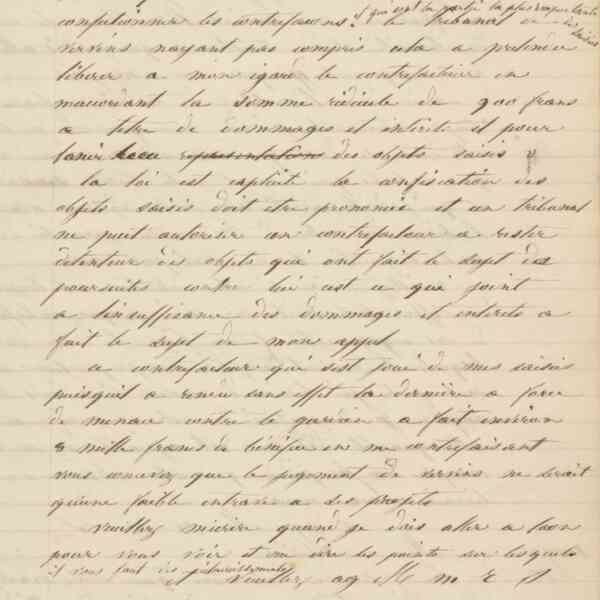 confectionner les contrefacons. et qui est la partie la plus importante
le tribunal de
vervins nayant pas compris cela a pretendu
liberer a mon egard le contrefacteur en
macordant la somme ridicule de 900 frans
a titre de dommages et interets et pour
tenir lieu representations des objets saisis
la loi est explicite la confiscation des
objets saisis doit etre prononcée et un tribunal
ne peut autoriser un contrefacteur a rester
detenteur des objets qui ont fait le sujet des
poursuites contre lui cest ce qui joint
a linsuffisance des dommages et interets a
fait le sujet de mon appel
ce contrefacteur qui sest joué de mes saisies
puisquil a rendu sans effet la derniere a force
de menace contre le gardien a fait environ
8 mille francs de bénéfice en me contrefaisant
vous concevez que le jugement de vervins ne serait
quune faible entrave a ses profits
veuillez micrire quand je dois aller a laon
pour vous voir et me dire les points sur lesquels
il vous faut des
veuillez ag Mr m E S